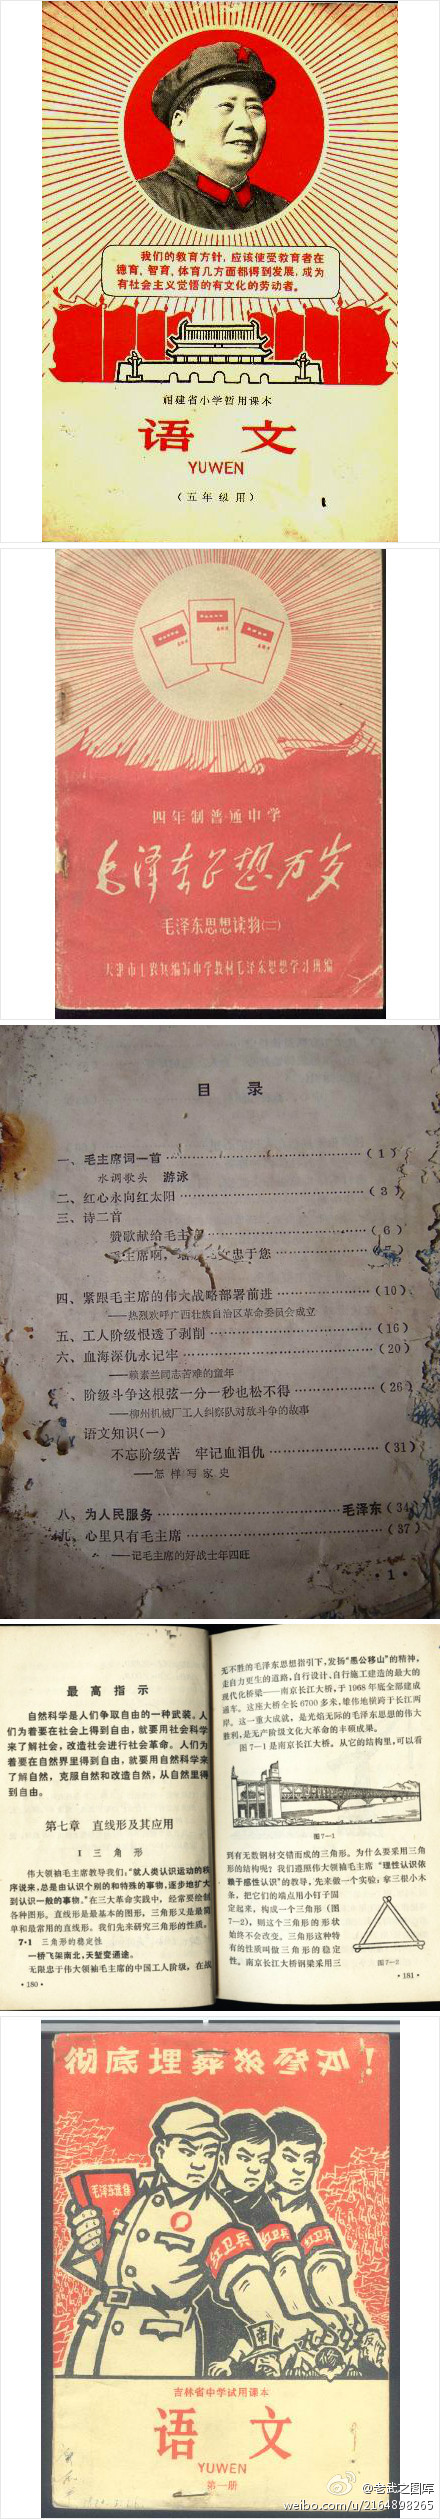 我们的教育方针，应该使受教育者在
德育、智育、体育几方面都得到发展，成为
有社会主义觉悟的有文化的劳动者。
福建省小学暂用课本
语文
YUWEN
（五年级用）
四年制普通中学
毛泽东思想万岁
毛泽东思想读物(二)
天津市工农兵编写中学教材毛泽东思想学习班编
目 录
一、毛主席词一首……(1)
水调歌头 游泳
二、红心永向红太阳……(3)
三、诗二首
赞歌献给毛主……(6)
主席啊，忠于您……
四、紧跟毛主席的伟大战略部署前进……(10)
——热烈欢呼广西壮族自治区革命委员会成立
五、工人阶级恨透了剥削……(16)
六、血海深仇永记牢……(20)
——赖素兰同志苦难的童年
阶级斗争这根弦一分一秒也松不得……(26)
——柳州机械厂工人纠察队对敌斗争的故事
语文知识(一)
不忘阶级苦 牢记血泪仇……(31)
——怎样写家史
八、为人民服务……毛泽东(34)
九、心里只有毛主席……(37)
——记毛主席的好战士年四旺
·1·
最高指示
自然科学是人们争取自由的一种武装。人
们为着要在社会上得到自由，就要用社会科学
来了解社会，改造社会进行社会革命。人们为
着要在自然界里得到自由，就要用自然科学来
了解自然，克服自然和改造自然，从自然里得
到自由。
第七章 直线形及其应用
I 三角形
伟大领袖毛主席教导我们：“就人类认识运动的秩
序说来，总是由认识个别的和特殊的事物，逐步地扩大
到认识一般的事物。”在三大革命实践中，经常要绘制
各种图形。直线形是最基本的图形，三角形又是最简
单和最常用的直线形。我们先来研究三角形的性质。
7·1 三角形的稳定性
一桥飞架南北，天堑变通途。
无限忠于伟大领袖毛主席的中国工人阶级，在战
·180·
无不胜的毛泽东思想指引下，发扬“愚公移山”的精神，
走自力更生的道路，自行设计、自行施工建造的最大的
现代化桥梁——南京长江大桥，于1968年底全部建成
通车。这座大桥全长6700多米，雄伟地横跨于长江两
岸。这一重大成就，是光焰无际的毛泽东思想的伟大
胜利，是无产阶级文化大革命的丰硕成果。
图7—1是南京长江大桥。从它的结构里，可以看
图7—1
到有无数钢材交错而成的三角形。为什么要采用三角
形的结构呢？我们遵照伟大领袖毛主席“理性认识依
赖于感性认识”的教导，先来做一个实验，拿三根小木
条，把它们的端点用小钉子固
定起来，构成一个三角形（图
7—2），则这个三角形的形状
始终不会改变。三角形这种特
有的性质叫做三角形的稳定
性。南京长江大桥钢梁采用三
图7—2
·181·
彻底埋葬帝修反！
毛泽东选集
红卫兵
红卫兵
红卫兵
吉林省中学试用课本
语文
YUWEN
第一册
@老武之图库
weibo.com/u/2164898265